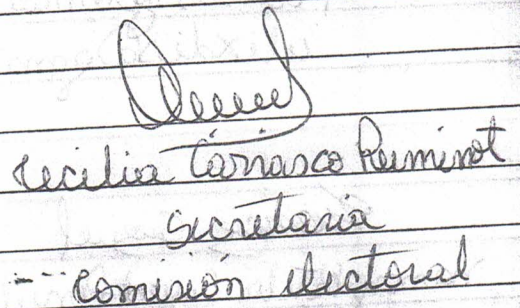 Cecilia Carrasco Reminot
Secretaria
--- Comisión electoral